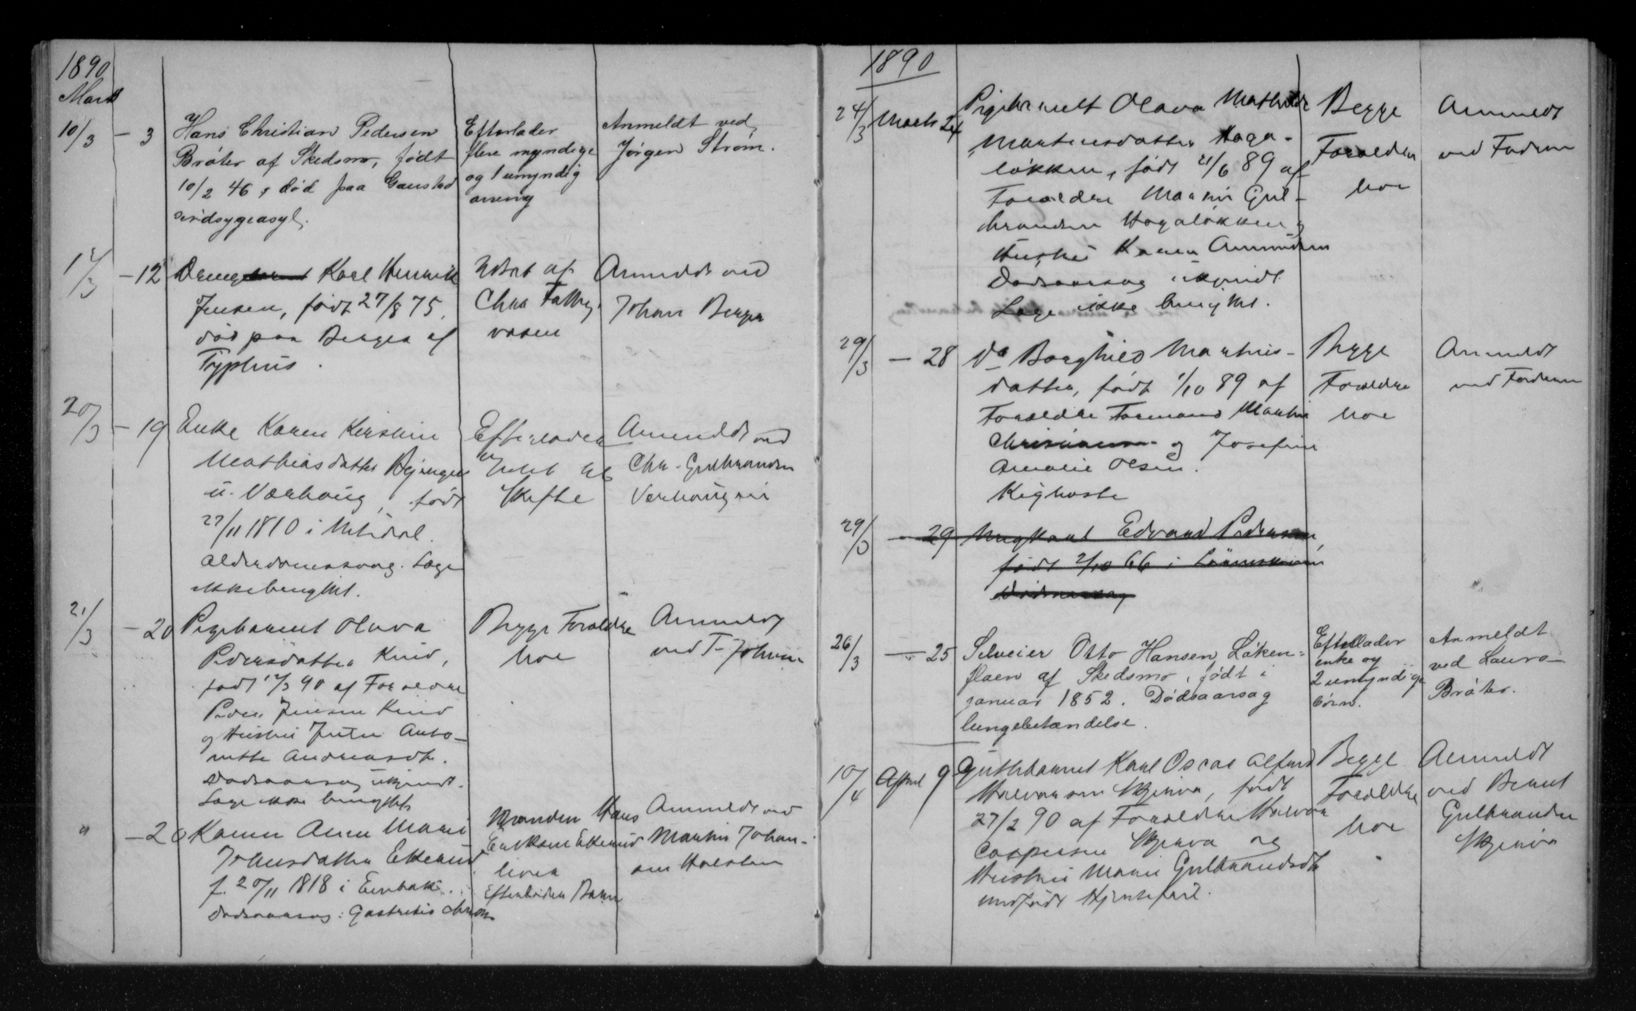 1890
Marts
10/3 - 3 Hans Christian Pedersen
Bråter af Skedsmo, født
10/2 46, død paa Gaustad
sindsygeasyl.
Efterlader
flere myndige
og 1 umyndig
arving
Anmeldt ved
Jørgen Strøm.
17/3 - 12 Dreng Karl Henrik
Jensen, født 27/8 75,
død paa Berger af
Typhus.
af
Chra Fattig-
væsen
Anmeldt ved
Johan Berger
20/3 - 19 Enke Karen Kirstine
Mathiasdatter
u. Værhaug, født
27/11 1810 i
Alderdomssvag. Læge
ikke benyttet.
Efterlader
Skifte
Anmeldt ved
Chr. Gulbrandsen
21/3 - 20 Pigebarnet Olava
Pedersdatter
født 90 af Forældre
Peder Jensen
og Hustru Anto-
nette Andreasdt.
Dødsaarsag ukjendt.
Læge ikke benyttet
Begge Forældre
live
Anmeldt
ved
" - 20 Karen Anne Marie
Johnsdatter Etterud
f. 20/11 1818 i Enebak.
Dødsaarsag: Gastritis chron
Manden Hans
Eriksen Etterud
lever
Efterlader Børn
Anmeldt ved
Martin Johan-
sen Holsten
1890
24/3 Marts 24 Pigebarnet Olava Mathilde
Martinsdatter Haga-
løkken, født 21/6 89 af
Forældre Martin Gul-
brandsen Hagaløkken og
Hustru Karen Amundsen
Dødsaarsag ukjendt
Læge ikke benyttet.
Begge
Forældre
live
Anmeldt
ved Faderen
29/3 - 28 do Borghild Martins-
datter, født 1/10 89 af
Forældre Formand Martin
Christiansen og Josefine
Amalie Olsen.
Kighoste
Begge
Forældre
live
Anmeldt
ved Faderen
29/3 - 29 Ungkarl Edvard Pedersen,
født 2/10 66 i
Dødsaarsag
26/3 - 25 Selveier Otto Hansen Løken-
flaen af Skedsmo, født i
januar 1852. Dødsaarsag
lungebetændelse.
Efterlader
enke og
2 umyndige
børn.
Anmeldt
ved Laura
Bråter.
10/4 April 9 Guttebarnet Karl Oscar Alfred
Halvorsen Skjerva, født
27/2 90 af Forældre Halvor
Caspersen Skjerva og
Hustru Maren Gulbrandsdt
medfødt Hjertefeil.
Begge
Forældre
live
Anmeldt
ved Bernt
Gulbrandsen
Skjerva